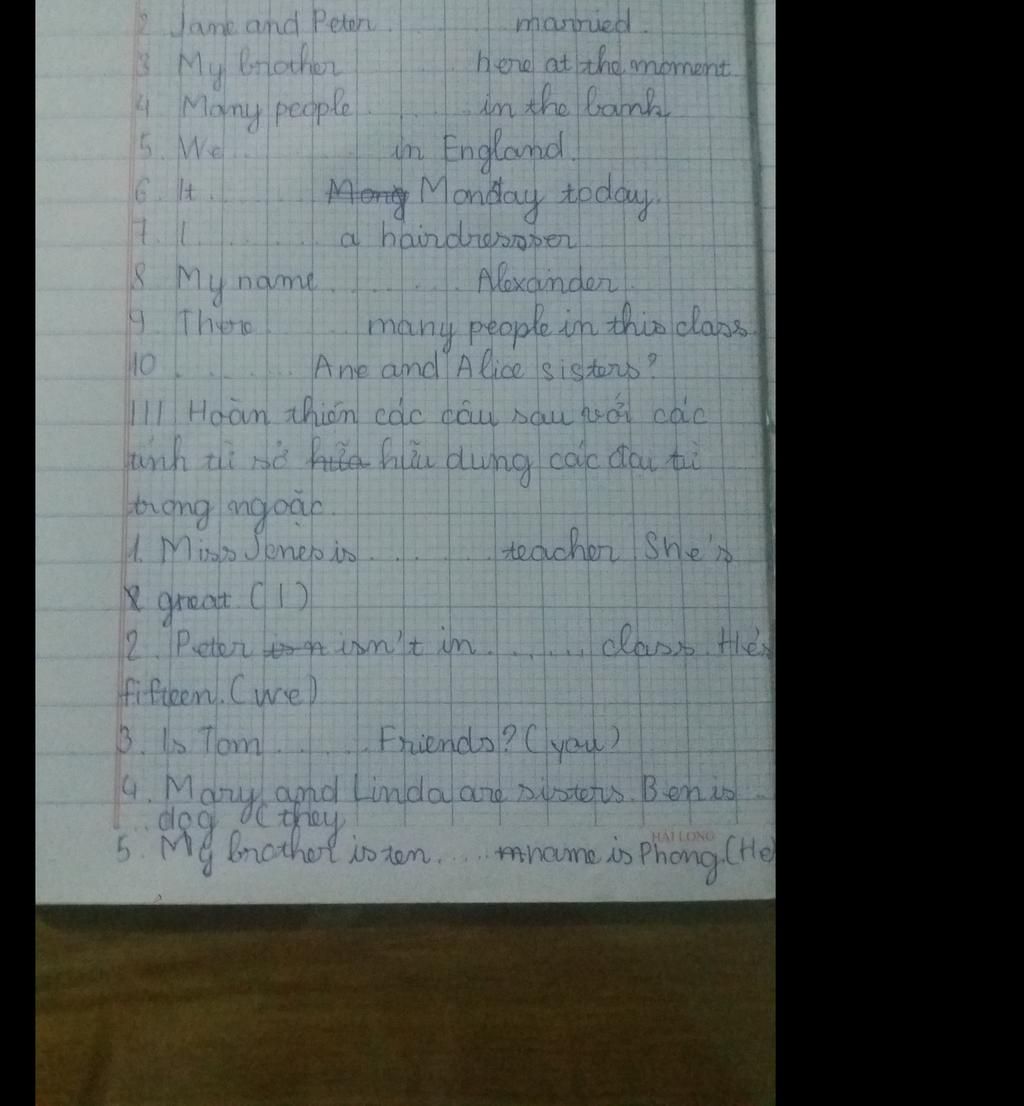 2 Jane and Peter ........ married.
3 My brother ........ here at the moment
4 Many people ........ in the bank
5. We ........ in England.
6 It ........ Mong Monday today.
7. I ........ a hairdresser
8 My name ........ Alexander.
9 There ........ many people in this class
10 ........ Ane and Alice sisters?
III Hoàn thiến các câu sau với các
tính từ sở hữa hữu dung các đại từ
trong ngoặc.
1. Miss Jones is ........ teacher She's
great (I)
2. Peter isn't in ...... class. He's
fifteen. (we)
3. Is Tom ...... Friends? (you)
4. Mary and Linda are sisters. Ben is
... dog (they
HẢI LONG
5. My brother is ten .... name is Phong. (He)